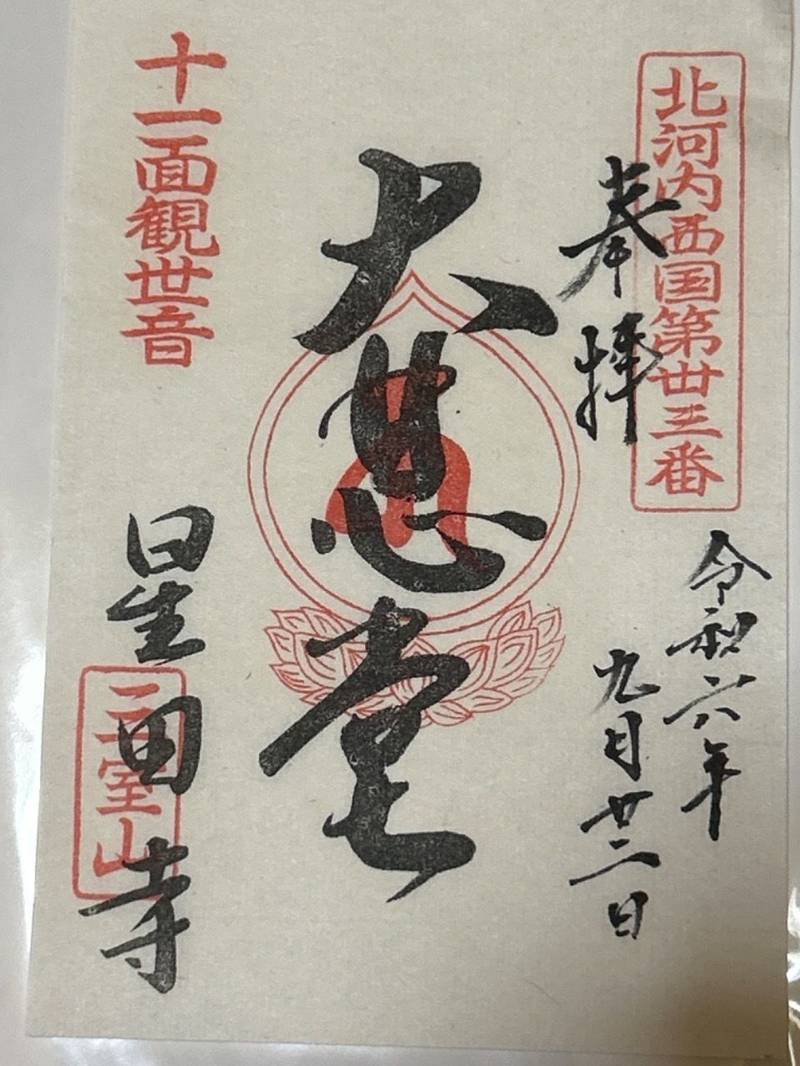 北河内西国第卅三番
奉拝
令和六年
九月廿二日
大悲堂
十一面観世音
星田寺
三室山